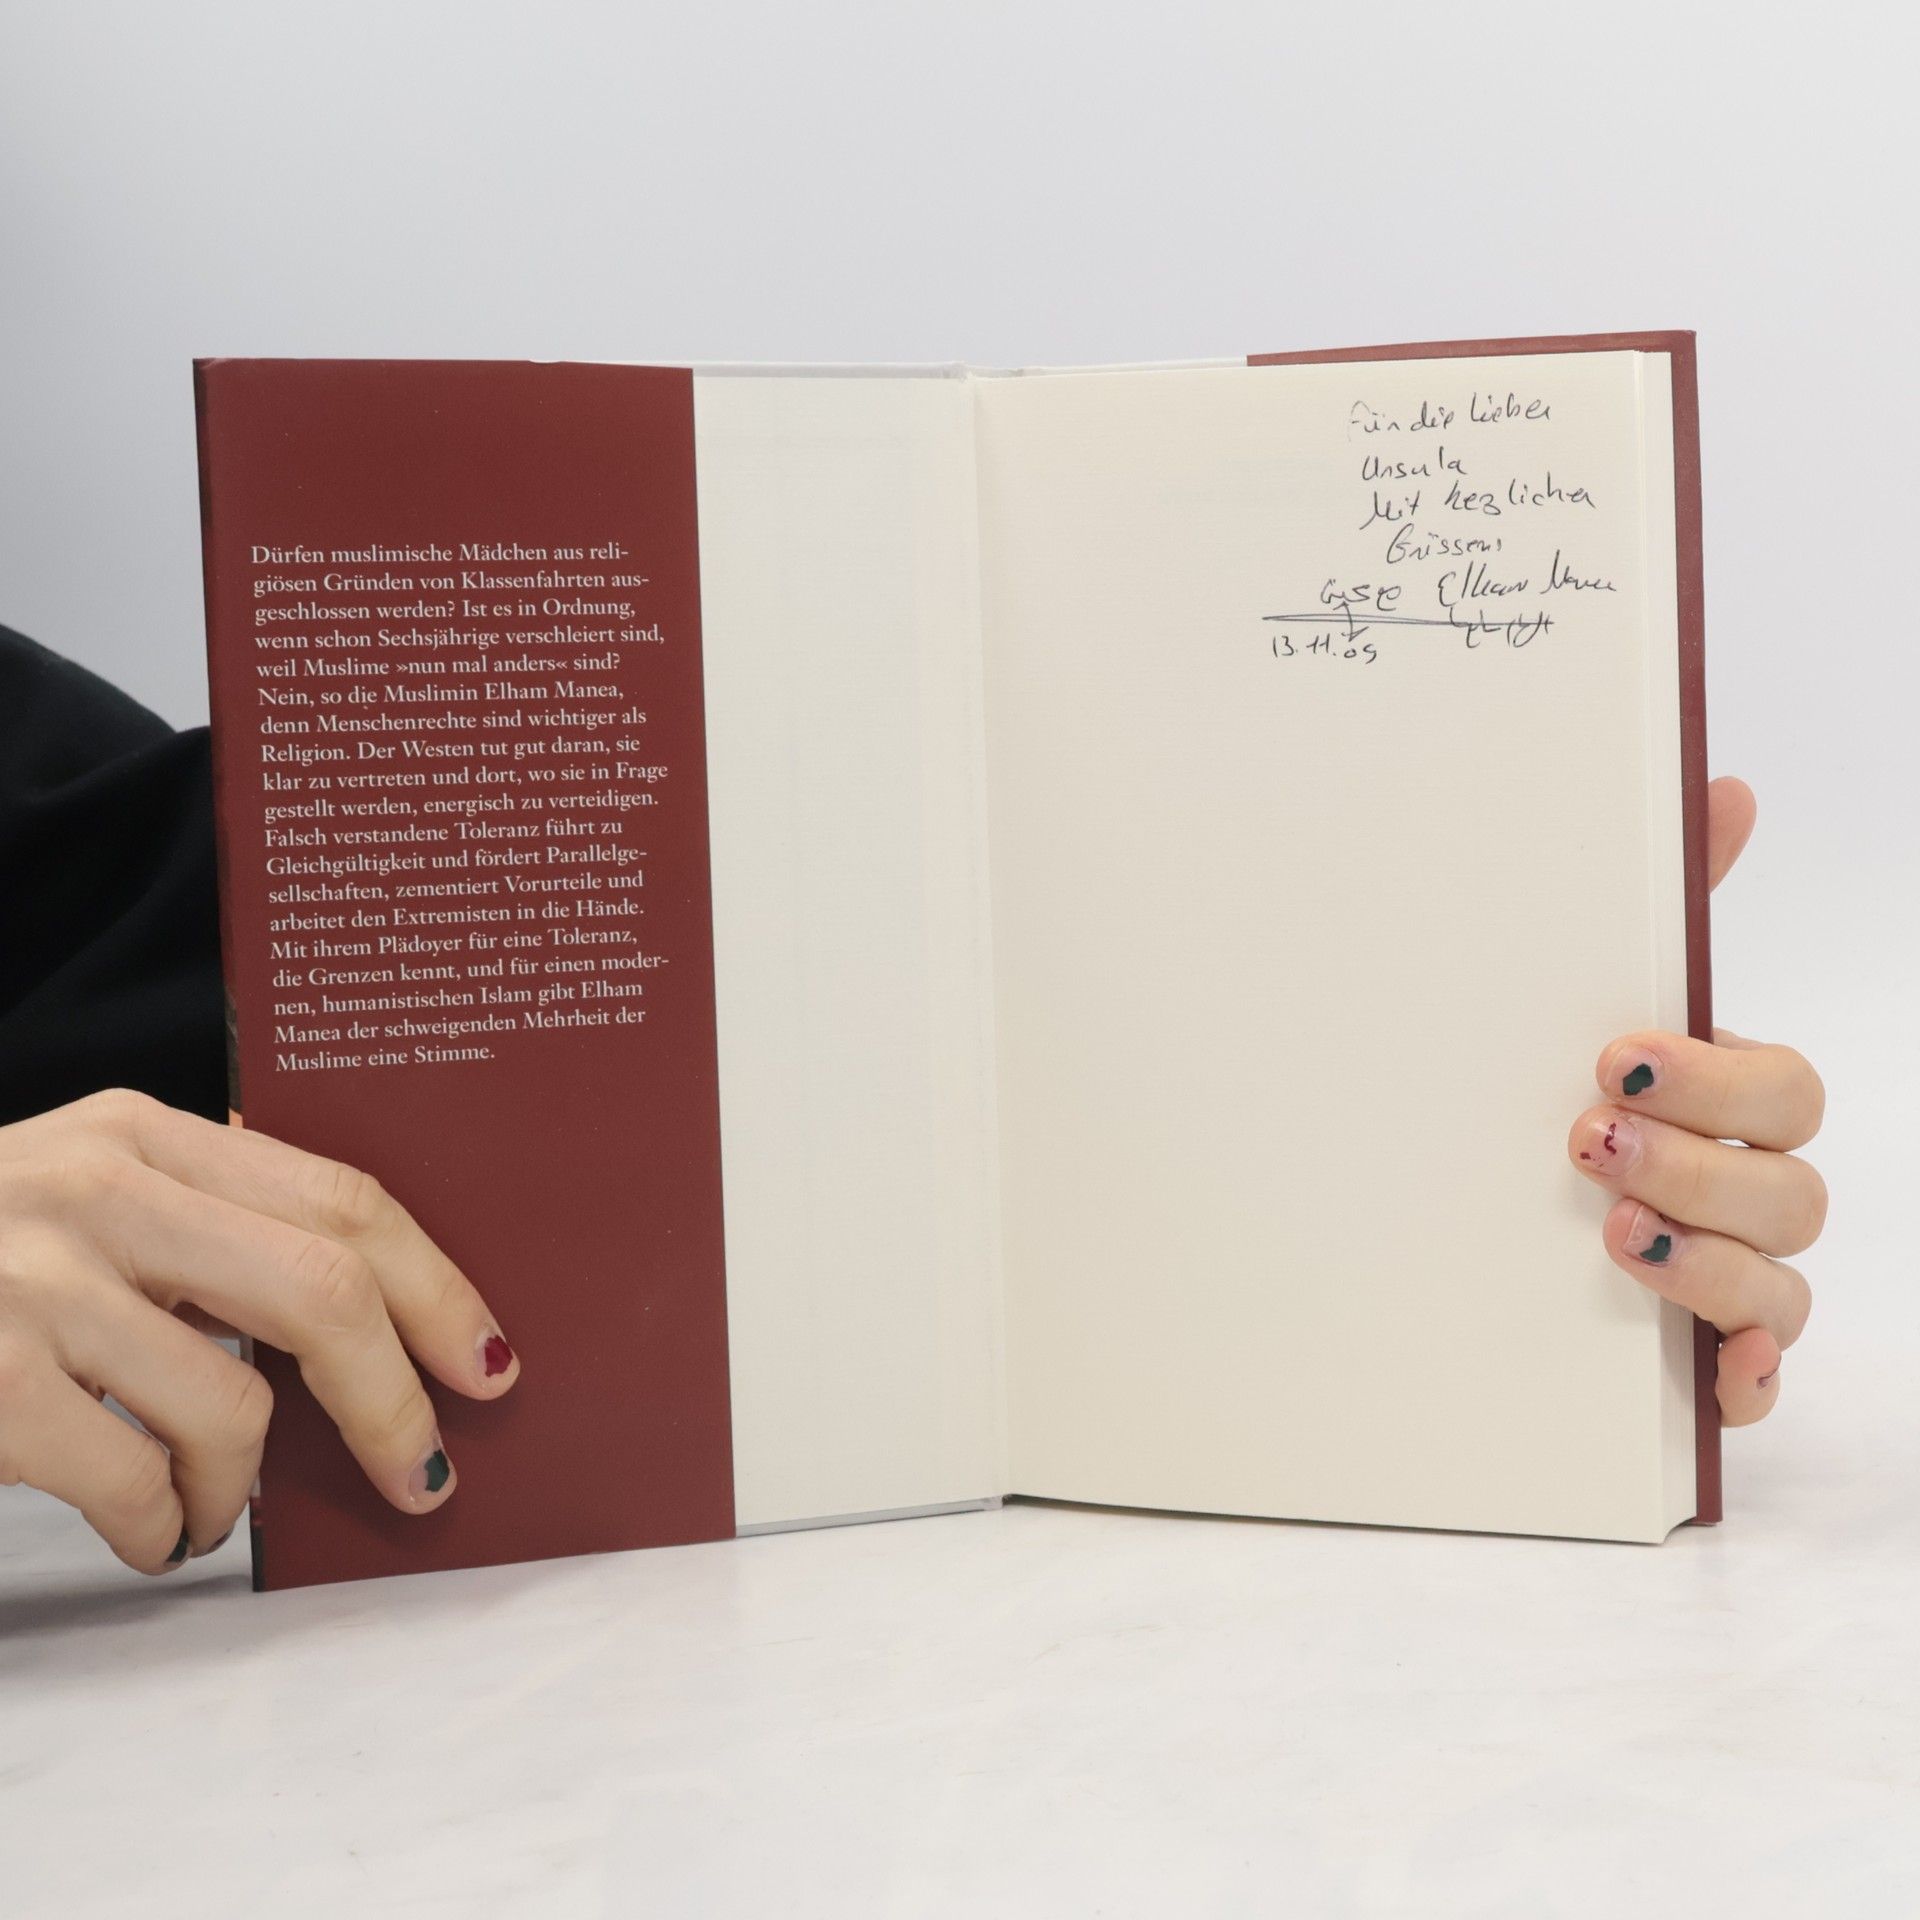 Dürfen muslimische Mädchen aus reli-
giösen Gründen von Klassenfahrten aus-
geschlossen werden? Ist es in Ordnung,
wenn schon Sechsjährige verschleiert sind,
weil Muslime »nun mal anders« sind?
Nein, so die Muslimin Elham Manea,
denn Menschenrechte sind wichtiger als
Religion. Der Westen tut gut daran, sie
klar zu vertreten und dort, wo sie in Frage
gestellt werden, energisch zu verteidigen.
Falsch verstandene Toleranz führt zu
Gleichgültigkeit und fördert Parallelge-
sellschaften, zementiert Vorurteile und
arbeitet den Extremisten in die Hände.
Mit ihrem Plädoyer für eine Toleranz,
die Grenzen kennt, und für einen moder-
nen, humanistischen Islam gibt Elham
Manea der schweigenden Mehrheit der
Muslime eine Stimme.
Für die lieben
Ursula
Mit hezlichen
Grüssen,
Elham Manea
13.11.09